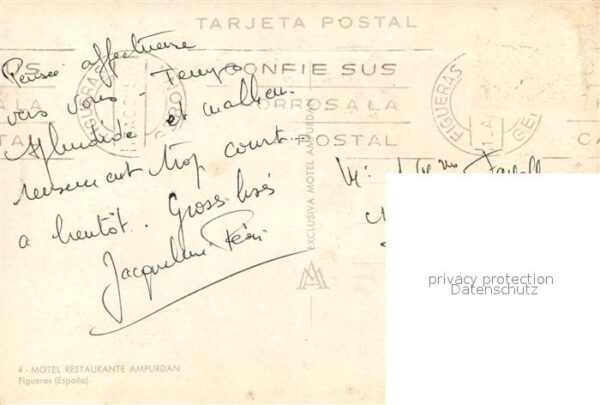 TARJETA POSTAL
Pensée affectueuse
vers vous - Temps
splendide et malheu-
reusement trop court -
a bientôt. Gross bisés
Jacqueline
FIGUERAS
CONFIE SUS
A LA
CORROS A LA
POSTAL
FIGUERAS
EXCLUSIVA MOTEL AMPURDAN
privacy protection
Datenschutz
4 - MOTEL RESTAURANTE AMPURDAN
Figueras (España)